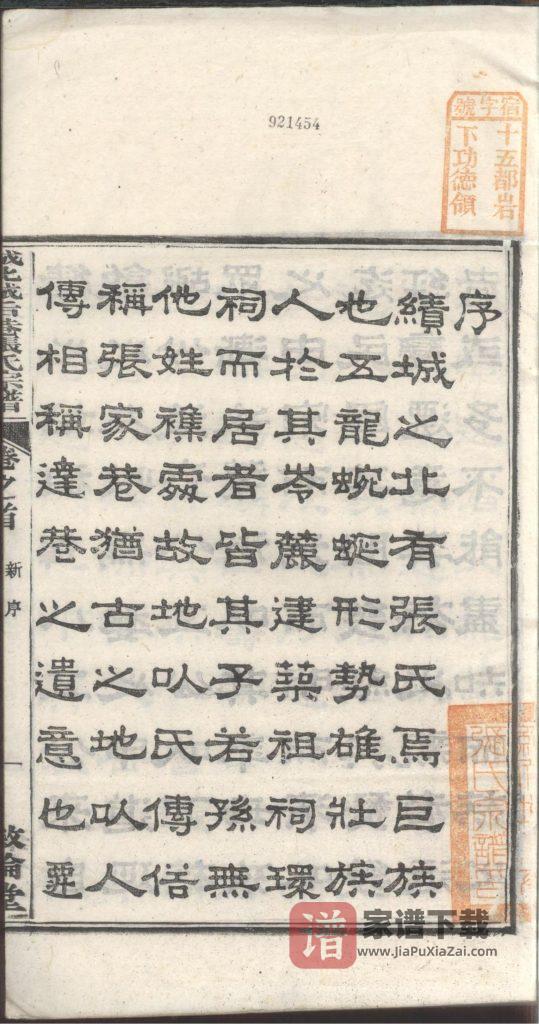 921454
宿字號
十五都岩
下功德領
序
績城之北有張氏焉巨族
也五龍蜿蜒形勢雄壯族
人於其岑麓建築祖祠環
祠而居者皆其子若孫無
他姓襍處故地以氏傳俗
稱張家巷猶古之地以人
傳相稱達巷之遺意也
巷張氏宗譜
卷之首
新序
一
敦倫堂
谱 家谱下载
www.JiaPuXiaZai.com